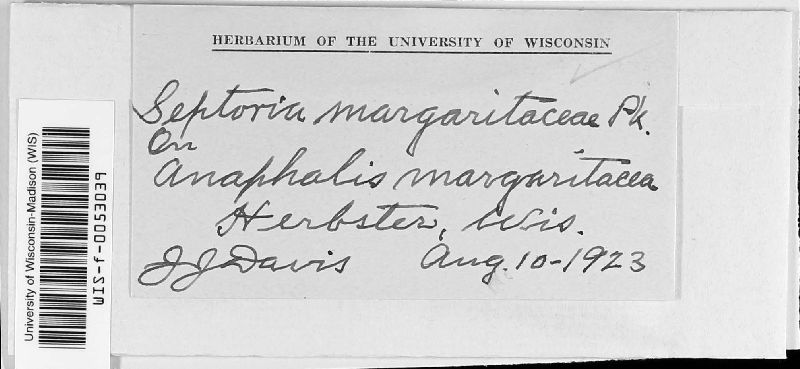 HERBARIUM OF THE UNIVERSITY OF WISCONSIN
Septoria margaritaceae Pk.
On
Anaphalis margaritacea
Herbster, Wis.
J J Davis Aug. 10-1923
University of Wisconsin-Madison (WIS)
WIS-f-0053039